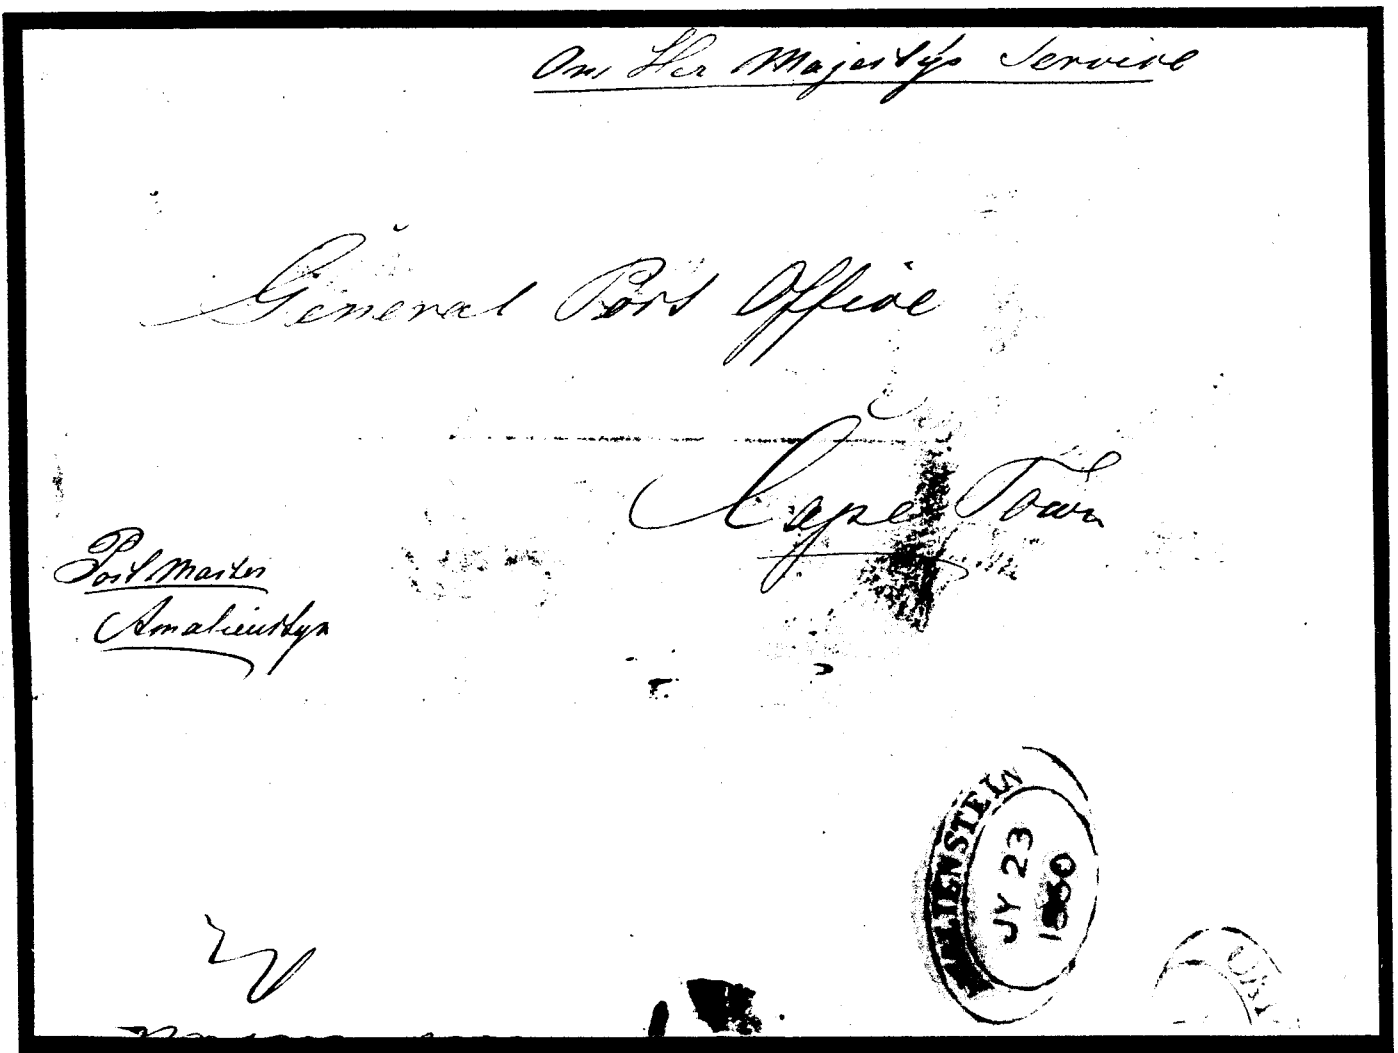 On Her Majestys Service
General Post Office
Cape Town
Post Master
Amalienstyn
JY 23